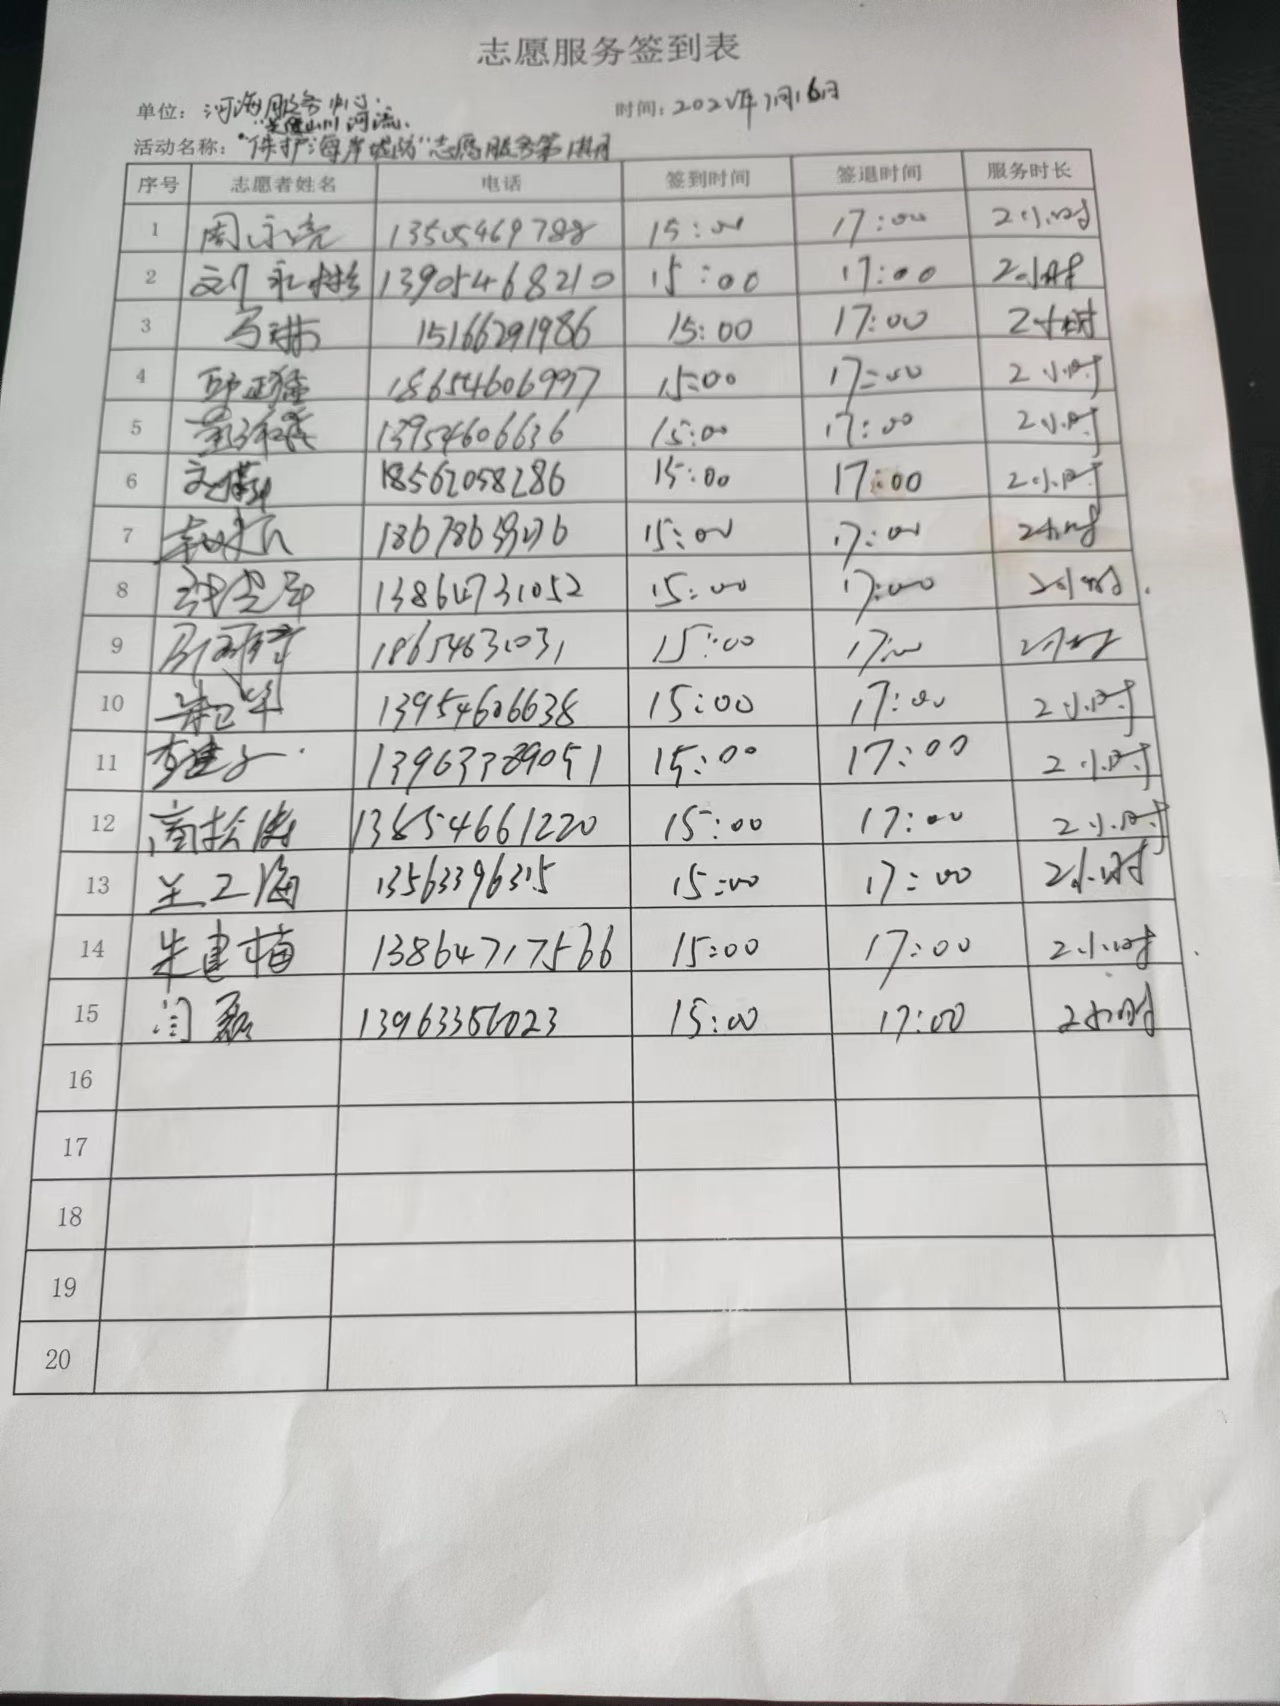 志愿服务签到表
单位: 河海服务中心 时间: 月16日
河流
活动名称: "保护海岸 "志愿服务第
序号 志愿者姓名 电话 签到时间 签退时间 服务时长
1 周永亮 13505469788 15:00 17:00 2小时
2 13905468210 15:00 17:00 2小时
3 马琳 15166291986 15:00 17:00 2小时
4 18654606997 15:00 17:00 2小时
5 13954606636 15:00 17:00 2小时
6 18562058286 15:00 17:00 2小时
7 15:00 17:00 2小时
8 13864731052 15:00 17:00 2小时
9 18654631031 15:00 17:00 2小时
10 13954606638 15:00 17:00 2小时
11 15:00 17:00 2小时
12 商松涛 13854661220 15:00 17:00 2小时
13 15:00 17:00 2小时
14 朱建梅 13864717566 15:00 17:00 2小时
15 闫磊 13963356023 15:00 17:00 2小时
16
17
18
19
20